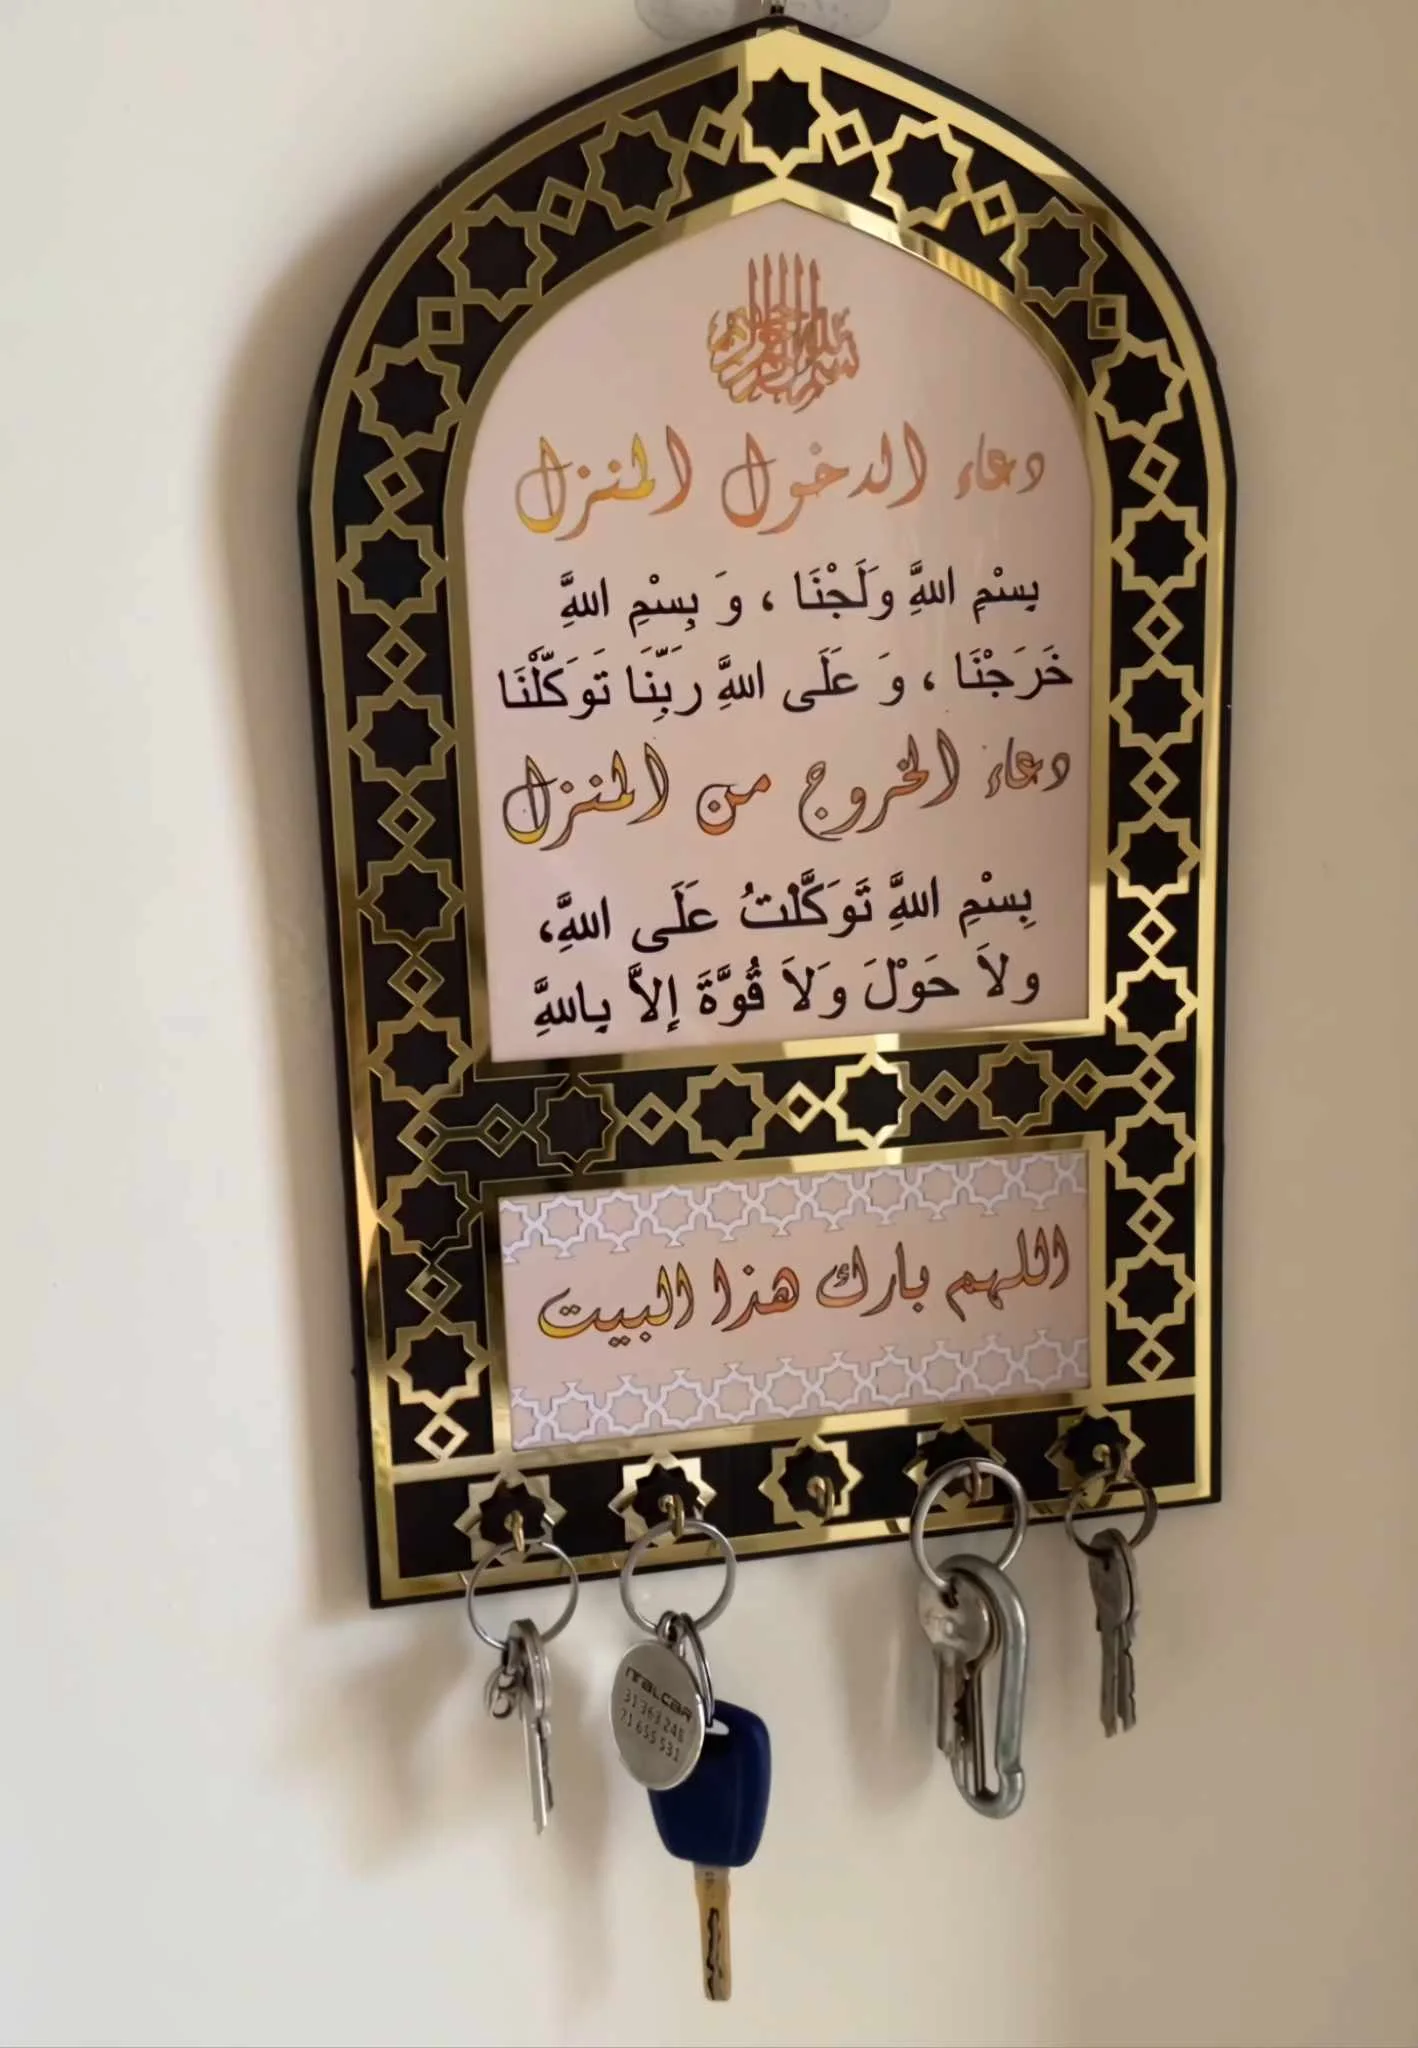 بسم الله الرحمن الرحيم
دعاء الدخول المنزل
بِسْمِ اللهَِّ وَلَجْنَا ، وَ بِسْمِ اللهَِّ
خَرَجْنَا ، وَ عَلَى اللهَِّ رَبِّنَا تَوَكَّلْنَا
دعاء الخروج من المنزل
بِسْمِ اللهَِّ تَوَكَّلْتُ عَلَى اللهَِّ،
ولاَ حَوْلَ وَلاَ قُوَّةَ إِلاَّ بِاللهَِّ
اللهم بارك هذا البيت
ITALCAR
31 363 248
71 655 531